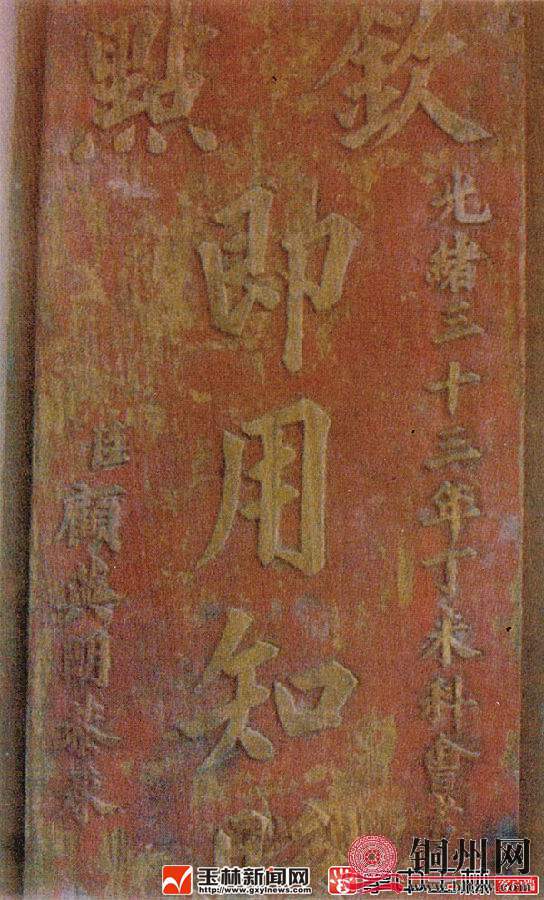 欽點
光緒三十三年丁未科會
即用知
臣顧英明恭承
玉林新闻网
http://www.gxylnews.com
铜州网